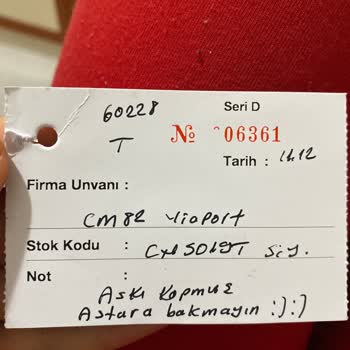 60228 Seri D
T № 06361
Tarih : 14.12
Firma Unvanı :
CM82 Viaport
Stok Kodu :
Not :
Askı Kopmuş
Astara bakmayın :) :)